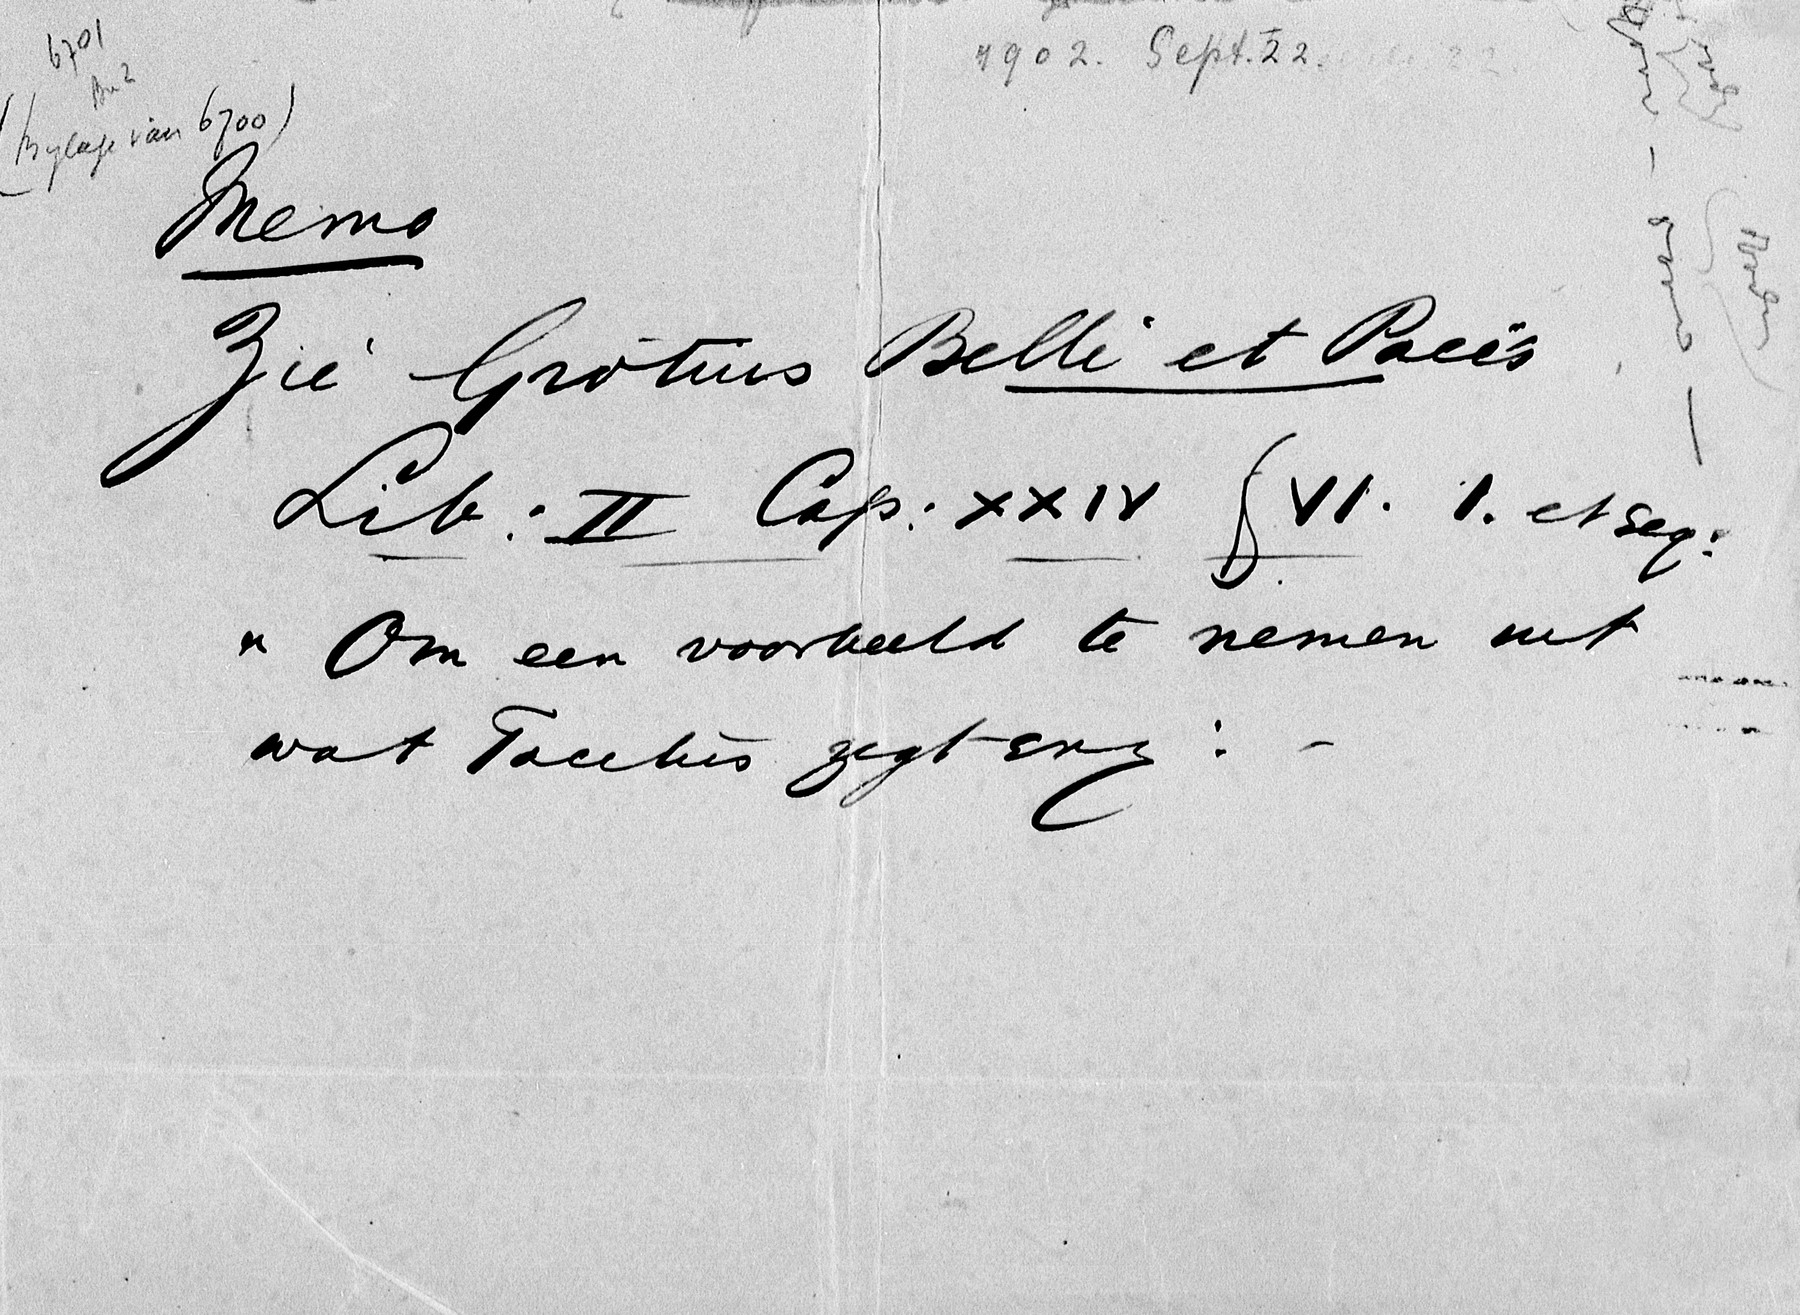 6701
(Bylage van 6700)
1902. Sept. 22.
Memo
Zie Grotius Belli et Pacis
Lib: II Cap: XXIV § VI. 1. et seq:
" Om een voorbeeld te nemen uit
wat Tacitus zegt enz: -